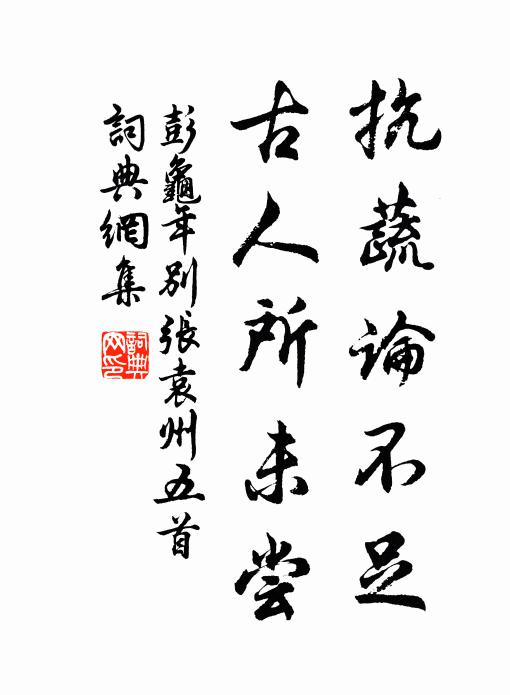 抗蔬論不足
古人所未尝
彭龜年别張袁州五首
詞典網集
詞典
网印